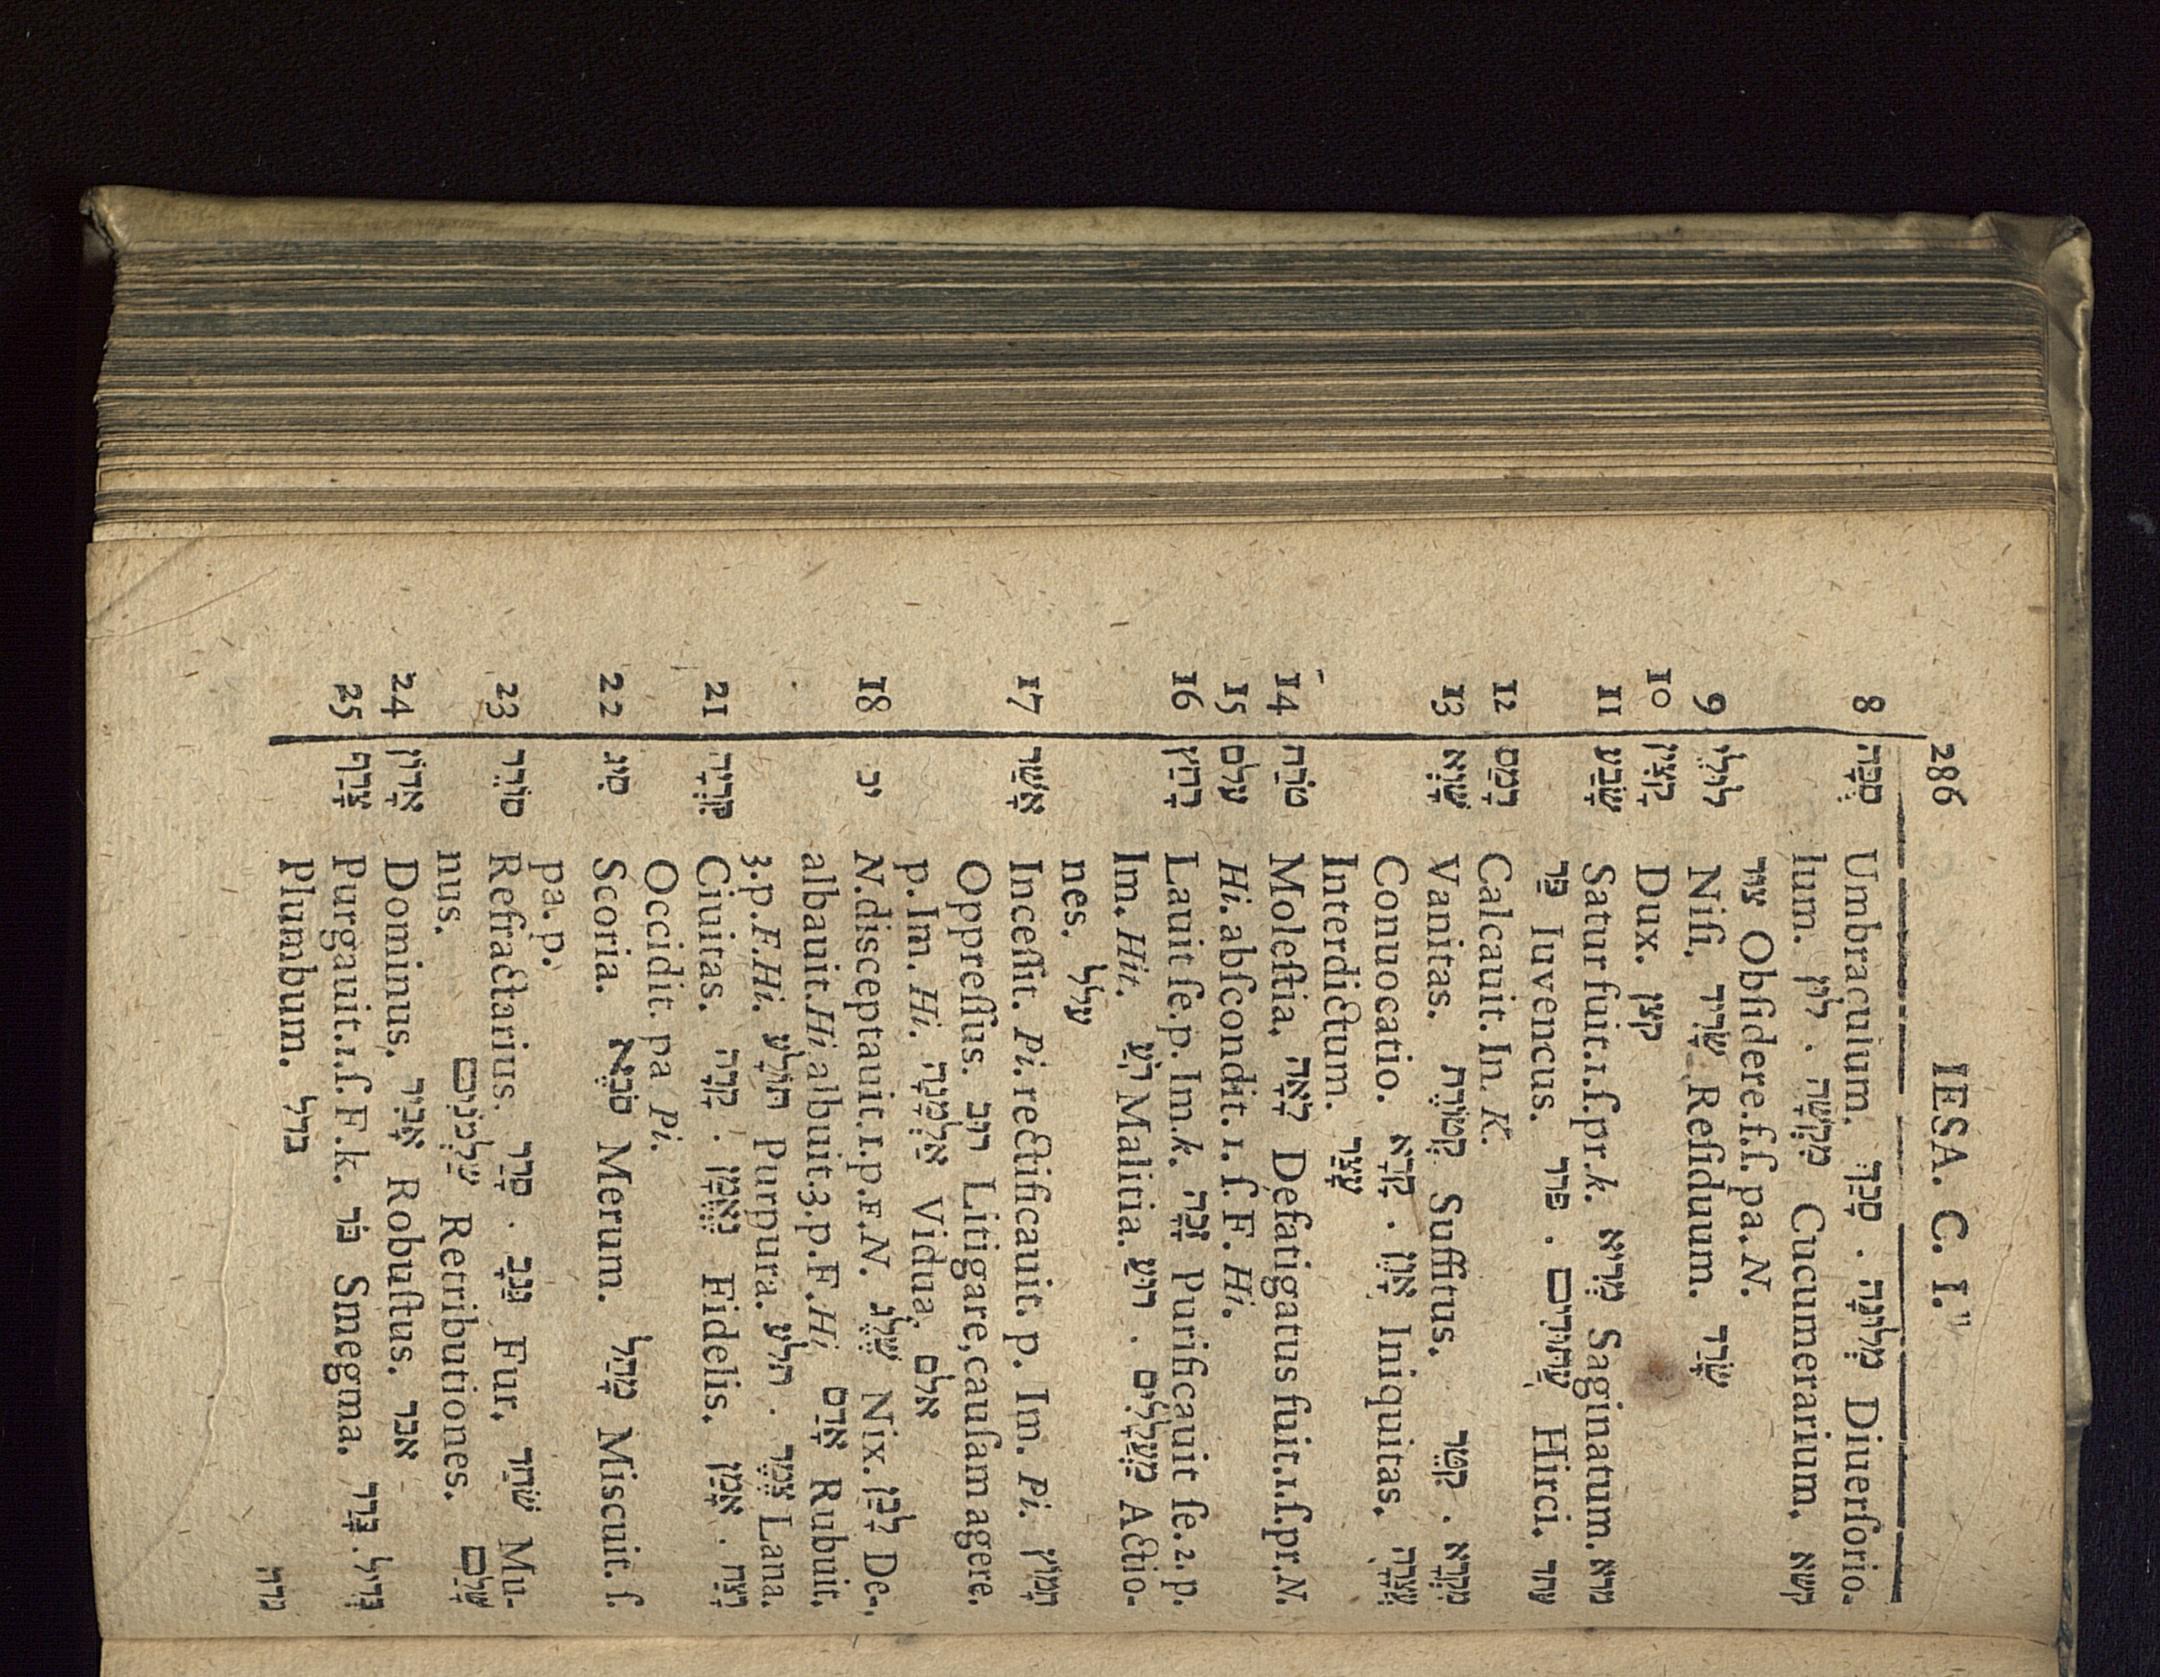 286 IESA. C. I.
8 סֻכָּה Umbraculum. סָכַךְ . מְלוּנָה Diuerſorio-
lum. לוּן . מִקְשָׁה Cucumerarium. קשא
צוּר Obſidere. f. ſ. pa. N.
9 לוּלֵי Niſi. שָׂרִיד Reſiduum. שָׂרַד
10 קָצִין Dux. קצן
11 שָׂבַע Satur fuit. 1. ſ. pr. k. מְרִיא Saginatum. מרא
פַּר Iuvencus. פרר . עַתּוּדִים Hirci. עתד
12 רָמַס Calcauit. In. K.
13 שָׁוְא Vanitas. קְטֹרֶת Suffitus. קִטֵּר . מִקְרָא
Conuocatio. קָרָא . אָוֶן Iniquitas. עֲצָרָה
Interdictum. עָצַר
14 טֹרַח Moleſtia. לָאָה Defatigatus fuit. 1. ſ. pr. N.
15 עלם Hi. abſcondit. 1. ſ. F. Hi.
16 רָחַץ Lauit ſe. p. Im. k. זָכָה Purificauit ſe. 2. p.
Im. Hit. רֹעַ Malitia. רוּעַ . מַעֲלָלִים Actio-
nes. עלל
17 אָשַׁר Inceſſit. Pi. rectificauit. p. Im. Pi. חָמוֹץ
Oppreſſus. רִיב Litigare, cauſam agere.
p. Im. Hi. אַלְמָנָה Vidua. אלם
18 יכח N. diſceptauit. 1. p. F. N. שֶׁלֶג Nix. לָבַן De-
albauit. Hi albuit. 3. p. F. Hi. אָדַם Rubuit.
3. p. F. Hi. תּוֹלָע Purpura. תלע . צֶמֶר Lana.
21 קִרְיָה Ciuitas. קָרָה . נֶאֱמָן Fidelis. אָמַן . רָצַח
Occidit. pa Pi.
22 סִיג Scoria. סֹבֶא Merum. מָהַל Miſcuit. ſ.
pa. p.
23 סוֹרֵר Refractarius. סָרַר . גַּנָּב Fur. שֹׁחַד Mu-
nus. שַׁלְמֹנִים Retributiones. שָׁלַם
24 אָדוֹן Dominus. אָבִיר Robuſtus. אבר
25 צָרַף Purgauit. 1. ſ. F. k. בֹּר Smegma. בָּרַר . בְּדִיל
Plumbum. בדל